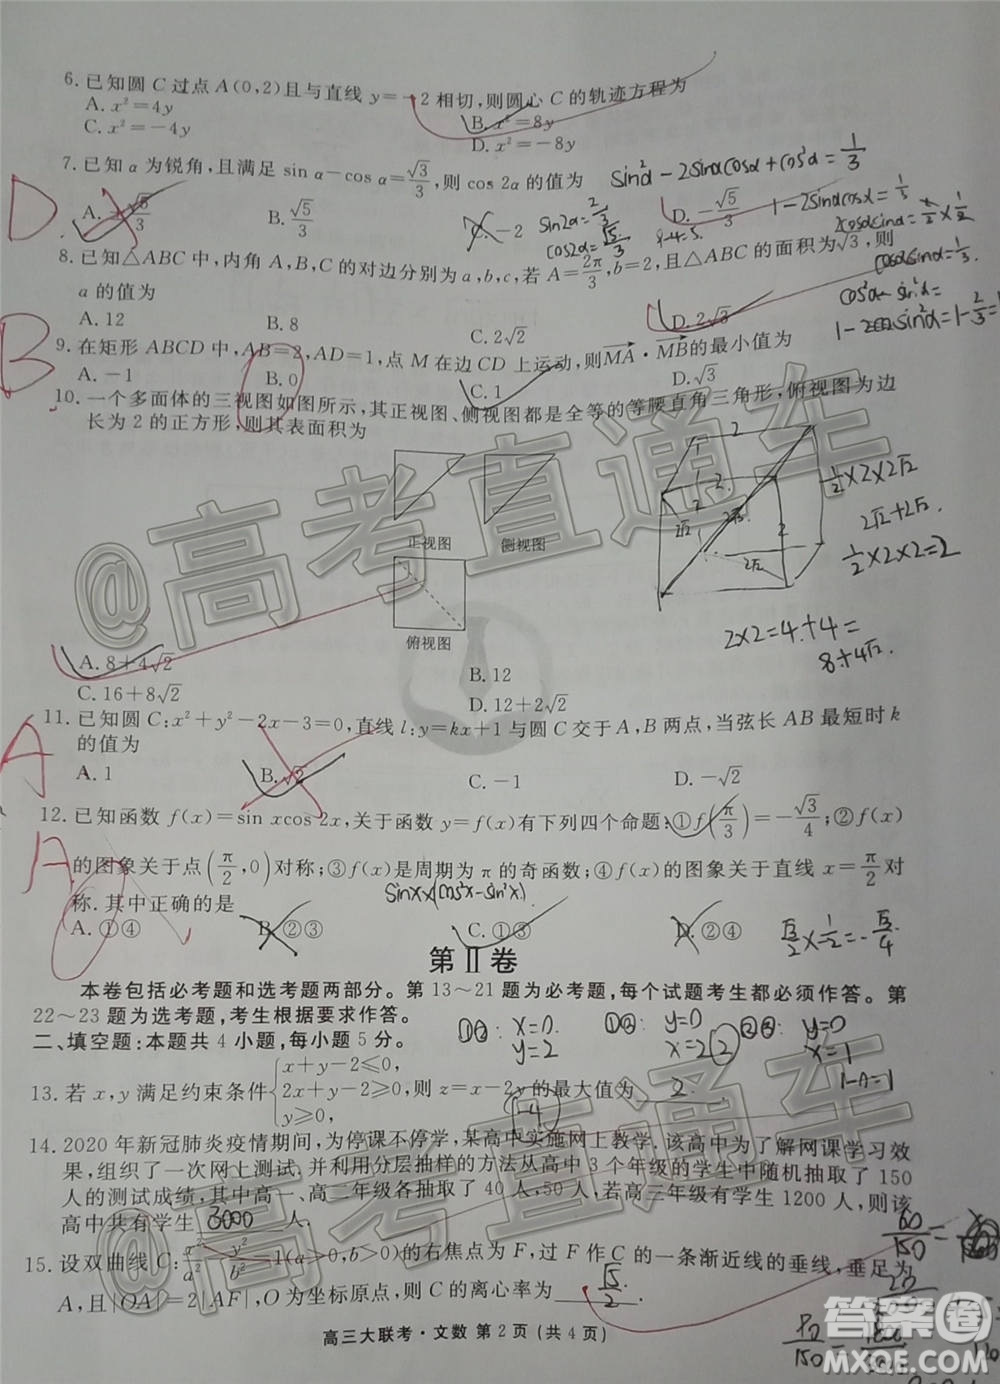 6. 已知圆 C 过点 A(0,2)且与直线 y=-2 相切,则圆心 C 的轨迹方程为
A. x²=4y
B. x²=8y
C. x²=-4y
D. x²=-8y
7. 已知 α 为锐角,且满足 sin α-cos α=√3/3,则 cos 2α 的值为
sin²α-2sinαcosα+cos²α=1/3
D
A. ±√5/3
B. √5/3
C. -2
D. -√5/3
sin2α=2/3
cos2α=√5/3
9-4=5
1-2sinαcosα=1/3
cosαsinα=1/3
8. 已知△ABC 中,内角 A,B,C 的对边分别为 a,b,c,若 A=2π/3,b=2,且△ABC 的面积为√3,则
a 的值为
A. 12
B. 8
C. 2√2
D. 2√3
cos²α-sin²α=
B
9. 在矩形 ABCD 中,AB=2,AD=1,点 M 在边 CD 上运动,则MA·MB的最小值为
A. -1
B. 0
C. 1
D. √3
10. 一个多面体的三视图如图所示,其正视图、侧视图都是全等的等腰直角三角形,俯视图为边
长为 2 的正方形,则其表面积为
正视图
侧视图
俯视图
2
2
2
2√2
2√3
2
2√2
1/2×2×2√2
2√2+2√2.
1/2×2×2=2
2×2=4.+4=
8+4√2.
A. 8+4√2
B. 12
C. 16+8√2
D. 12+2√2
A
11. 已知圆 C:x²+y²-2x-3=0,直线 l:y=kx+1 与圆 C 交于 A,B 两点,当弦长 AB 最短时 k
的值为
A. 1
B. √2
C. -1
D. -√2
A
12. 已知函数 f(x)=sin xcos 2x,关于函数 y=f(x)有下列四个命题:①f(π/3)=-√3/4;②f(x)
的图象关于点(π/2,0)对称;③f(x)是周期为 π 的奇函数;④f(x)的图象关于直线 x=π/2对
称.其中正确的是
sinx×(cos²x-sin²x)
A. ①④
B. ②③
C. ①③
D. ②④
√3/2×1/-2=-√3/4
第Ⅱ卷
本卷包括必考题和选考题两部分。第 13~21 题为必考题,每个试题考生都必须作答。第
22~23 题为选考题,考生根据要求作答。
二、填空题:本题共 4 小题,每小题 5 分。
①②: x=0. y=2
①③: y=0. x=2 ②
②③: y=0 x=1
1-0=1
13. 若 x,y 满足约束条件{x+y-2≤0, 2x+y-2≥0, y≥0, 则 z=x-2y 的最大值为 2 .
-4
14. 2020 年新冠肺炎疫情期间,为停课不停学,某高中实施网上教学.该高中为了解网课学习效
果,组织了一次网上测试.并利用分层抽样的方法从高中 3 个年级的学生中随机抽取了 150
人的测试成绩,其中高一、高二年级各抽取了 40 人,50 人,若高三年级有学生 1200 人,则该
高中共有学生 3000 人.
60/150=
15. 设双曲线 C:x²/a²-y²/b²=1(a>0,b>0)的右焦点为 F,过 F 作 C 的一条渐近线的垂线,垂足为
A,且|OA|=2|AF|,O为坐标原点,则 C 的离心率为 √5/2 .
高三大联考·文数 第 2 页 (共 4 页)
@高考直通车
@高考直通车
答案圈
MXQE.COM